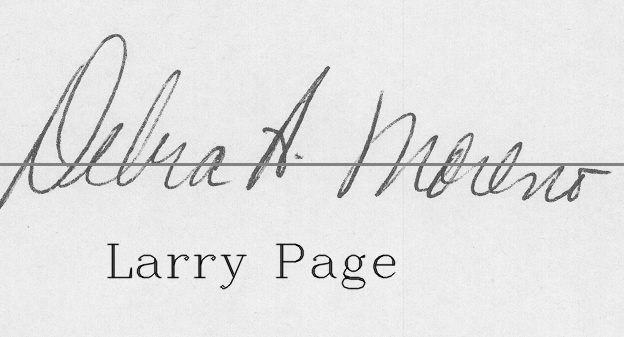 Debra A. Moreno
Larry Page